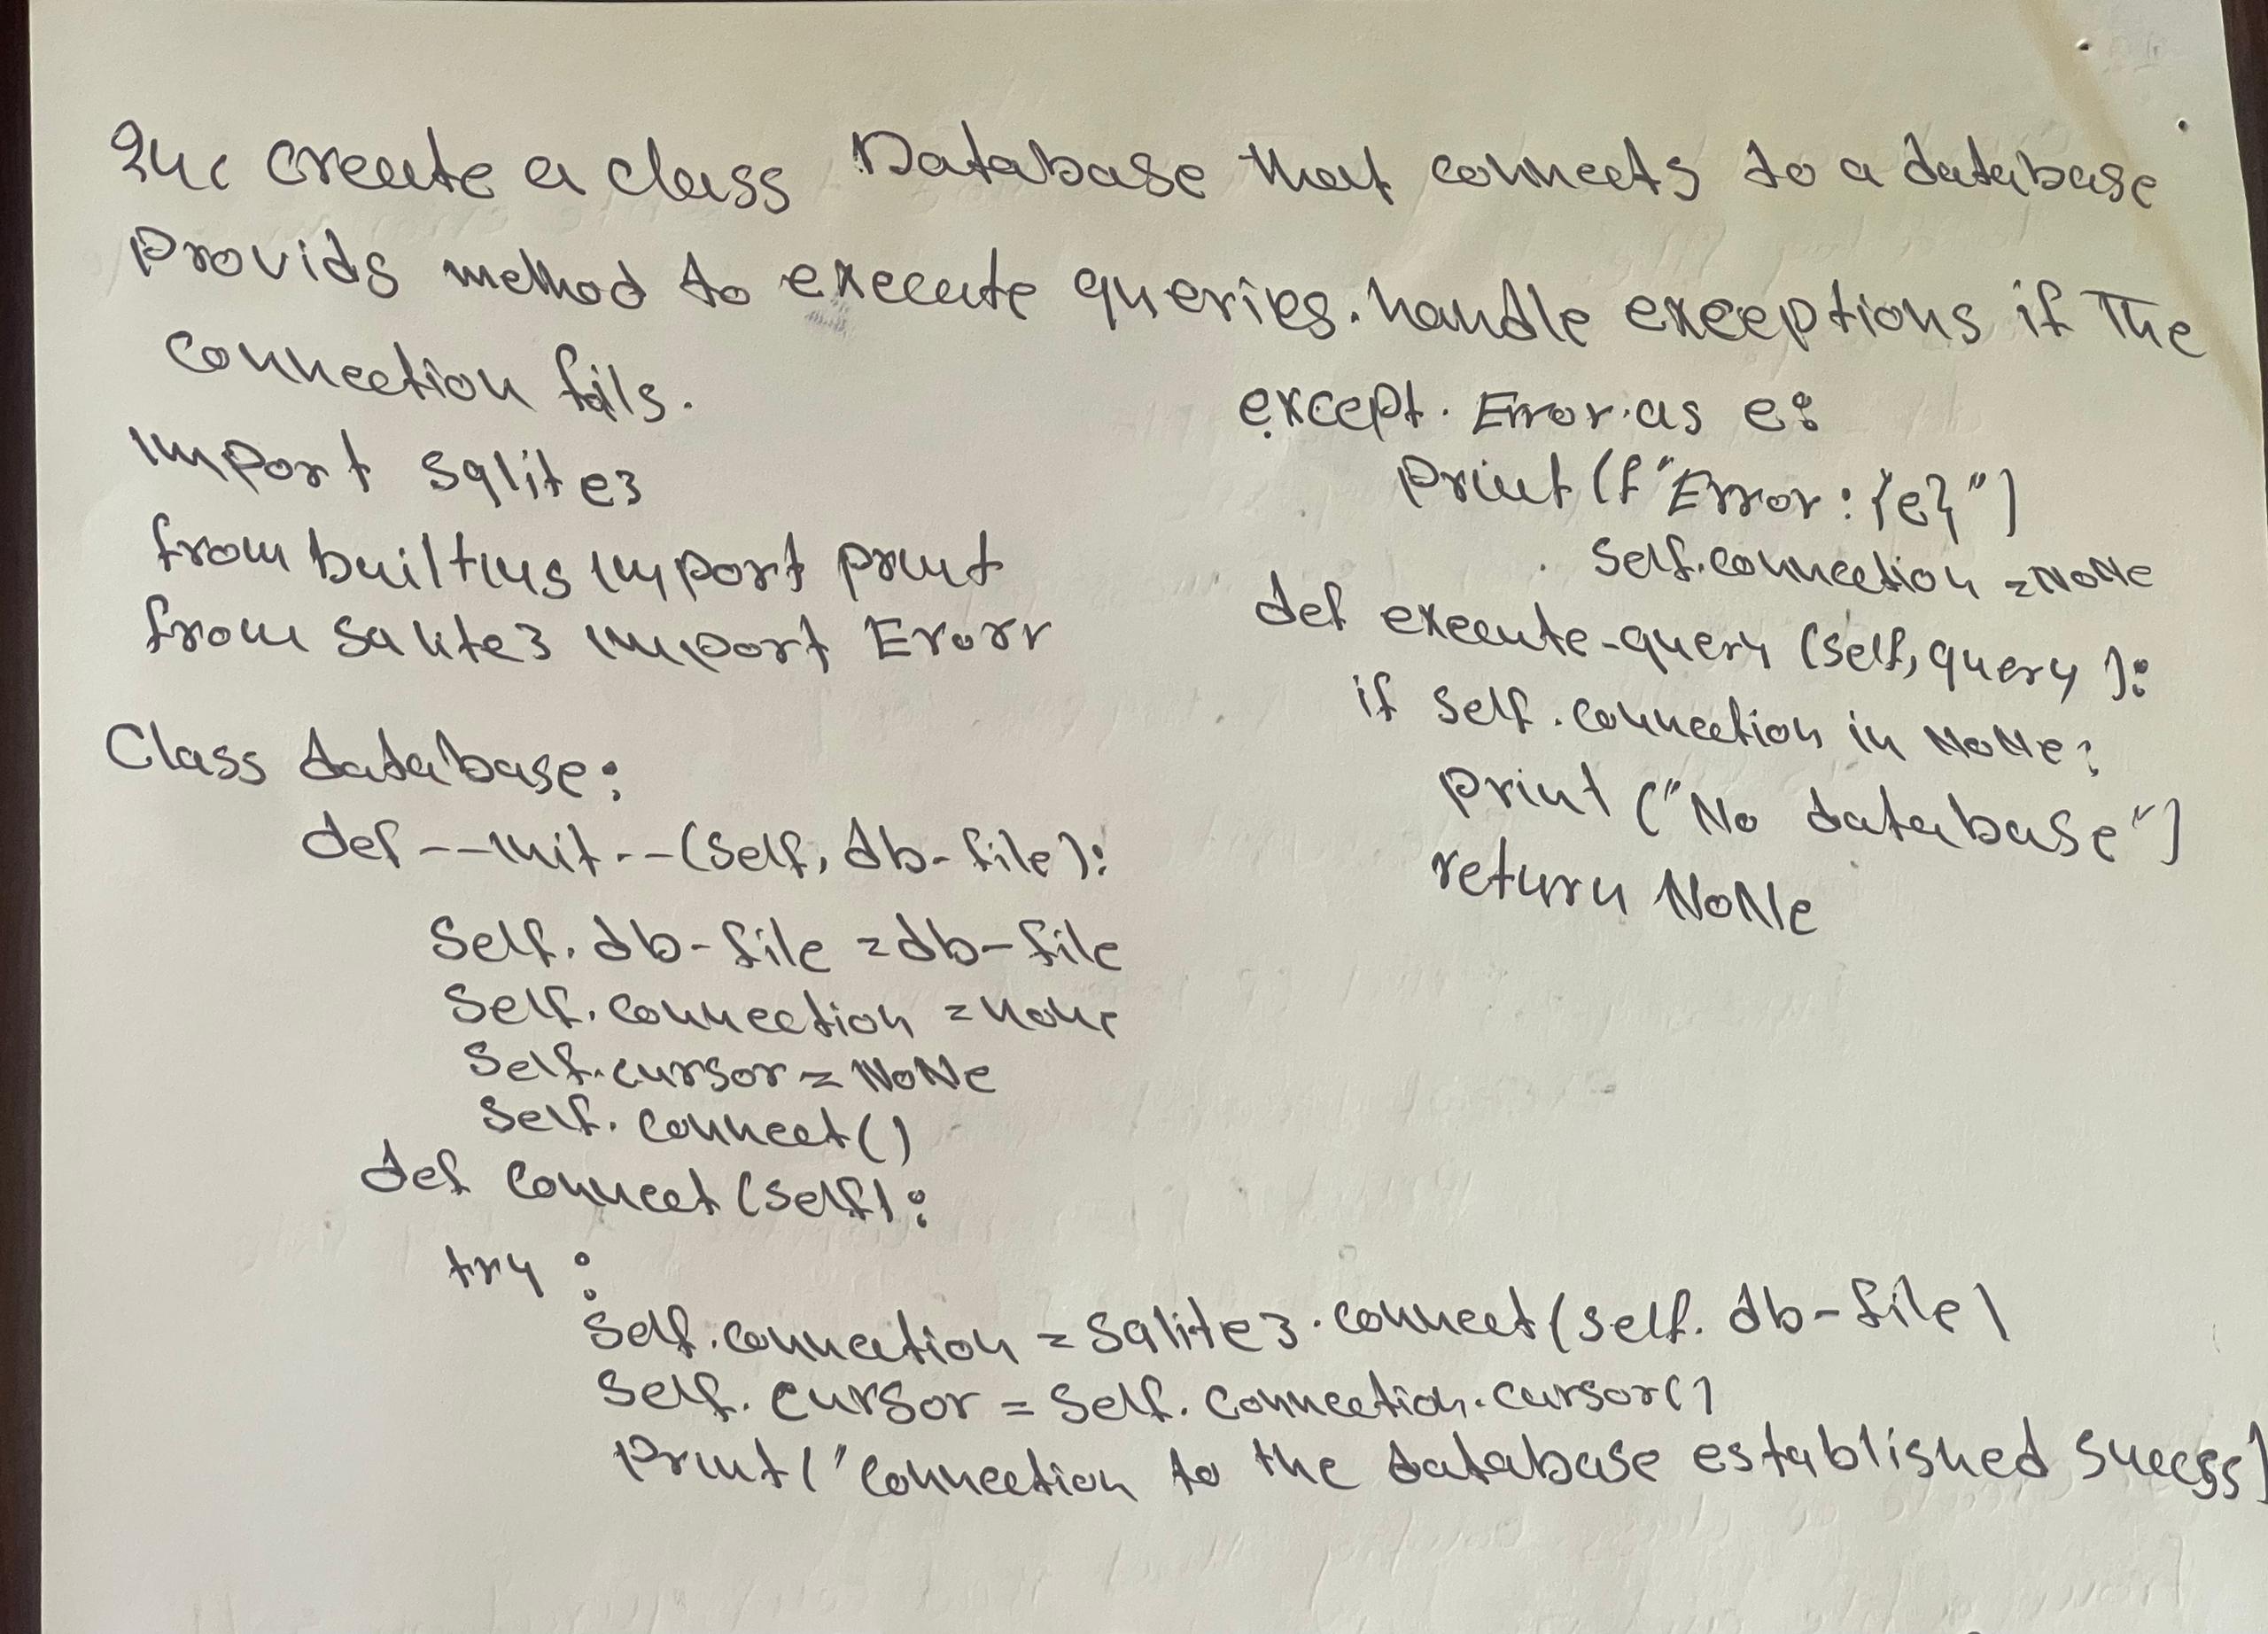 24c create a class Database that connects to a database
Provids method to execute queries. handle exceptions if The
connection fails.
import sqlite3
from builtins import print
from salite3 import Erorr
Class database:
def --init--(self, db-file):
Self. db-file = db-file
Self. connection = none
Self.cursor = NoNe
Self. connect()
def connect (self):
try :
Self.connection = Sqlite3.connect(self. db-file)
Self. cursor = Self. connection.cursor()
Print("Connection to the database established Success)
except. Error.as e:
Print (f"Error : {e}")
Self.connection = NoNe
def execute-query (Self, query ):
if Self.connection in NoNe:
Print ("No database")
return NoNe